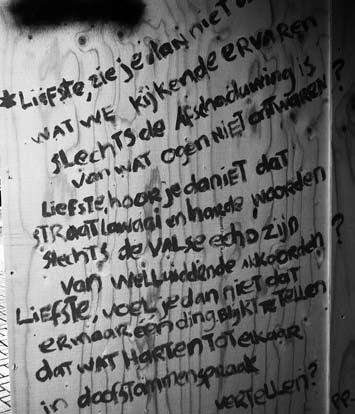 *LIEFSTE, zie je dan niet
WAT WE KIJKENDE ERVAREN
SLECHTS de Afschaduwing is
van WAT ogen NIET ontwaren?
Liefste, hoor je daniET dat
STRAATLawaai en harde woorden
slechts de VALSE echo zijn
van WELLUIDENDE AKKOORDEN?
LIEFSTE, voel je dan niet dat
er maar een ding BLIJKT TE TELLEN
DAT WAT HARTEN TOT ELKAAR
in doofstommenspraak
VERTELLEN?
PP.